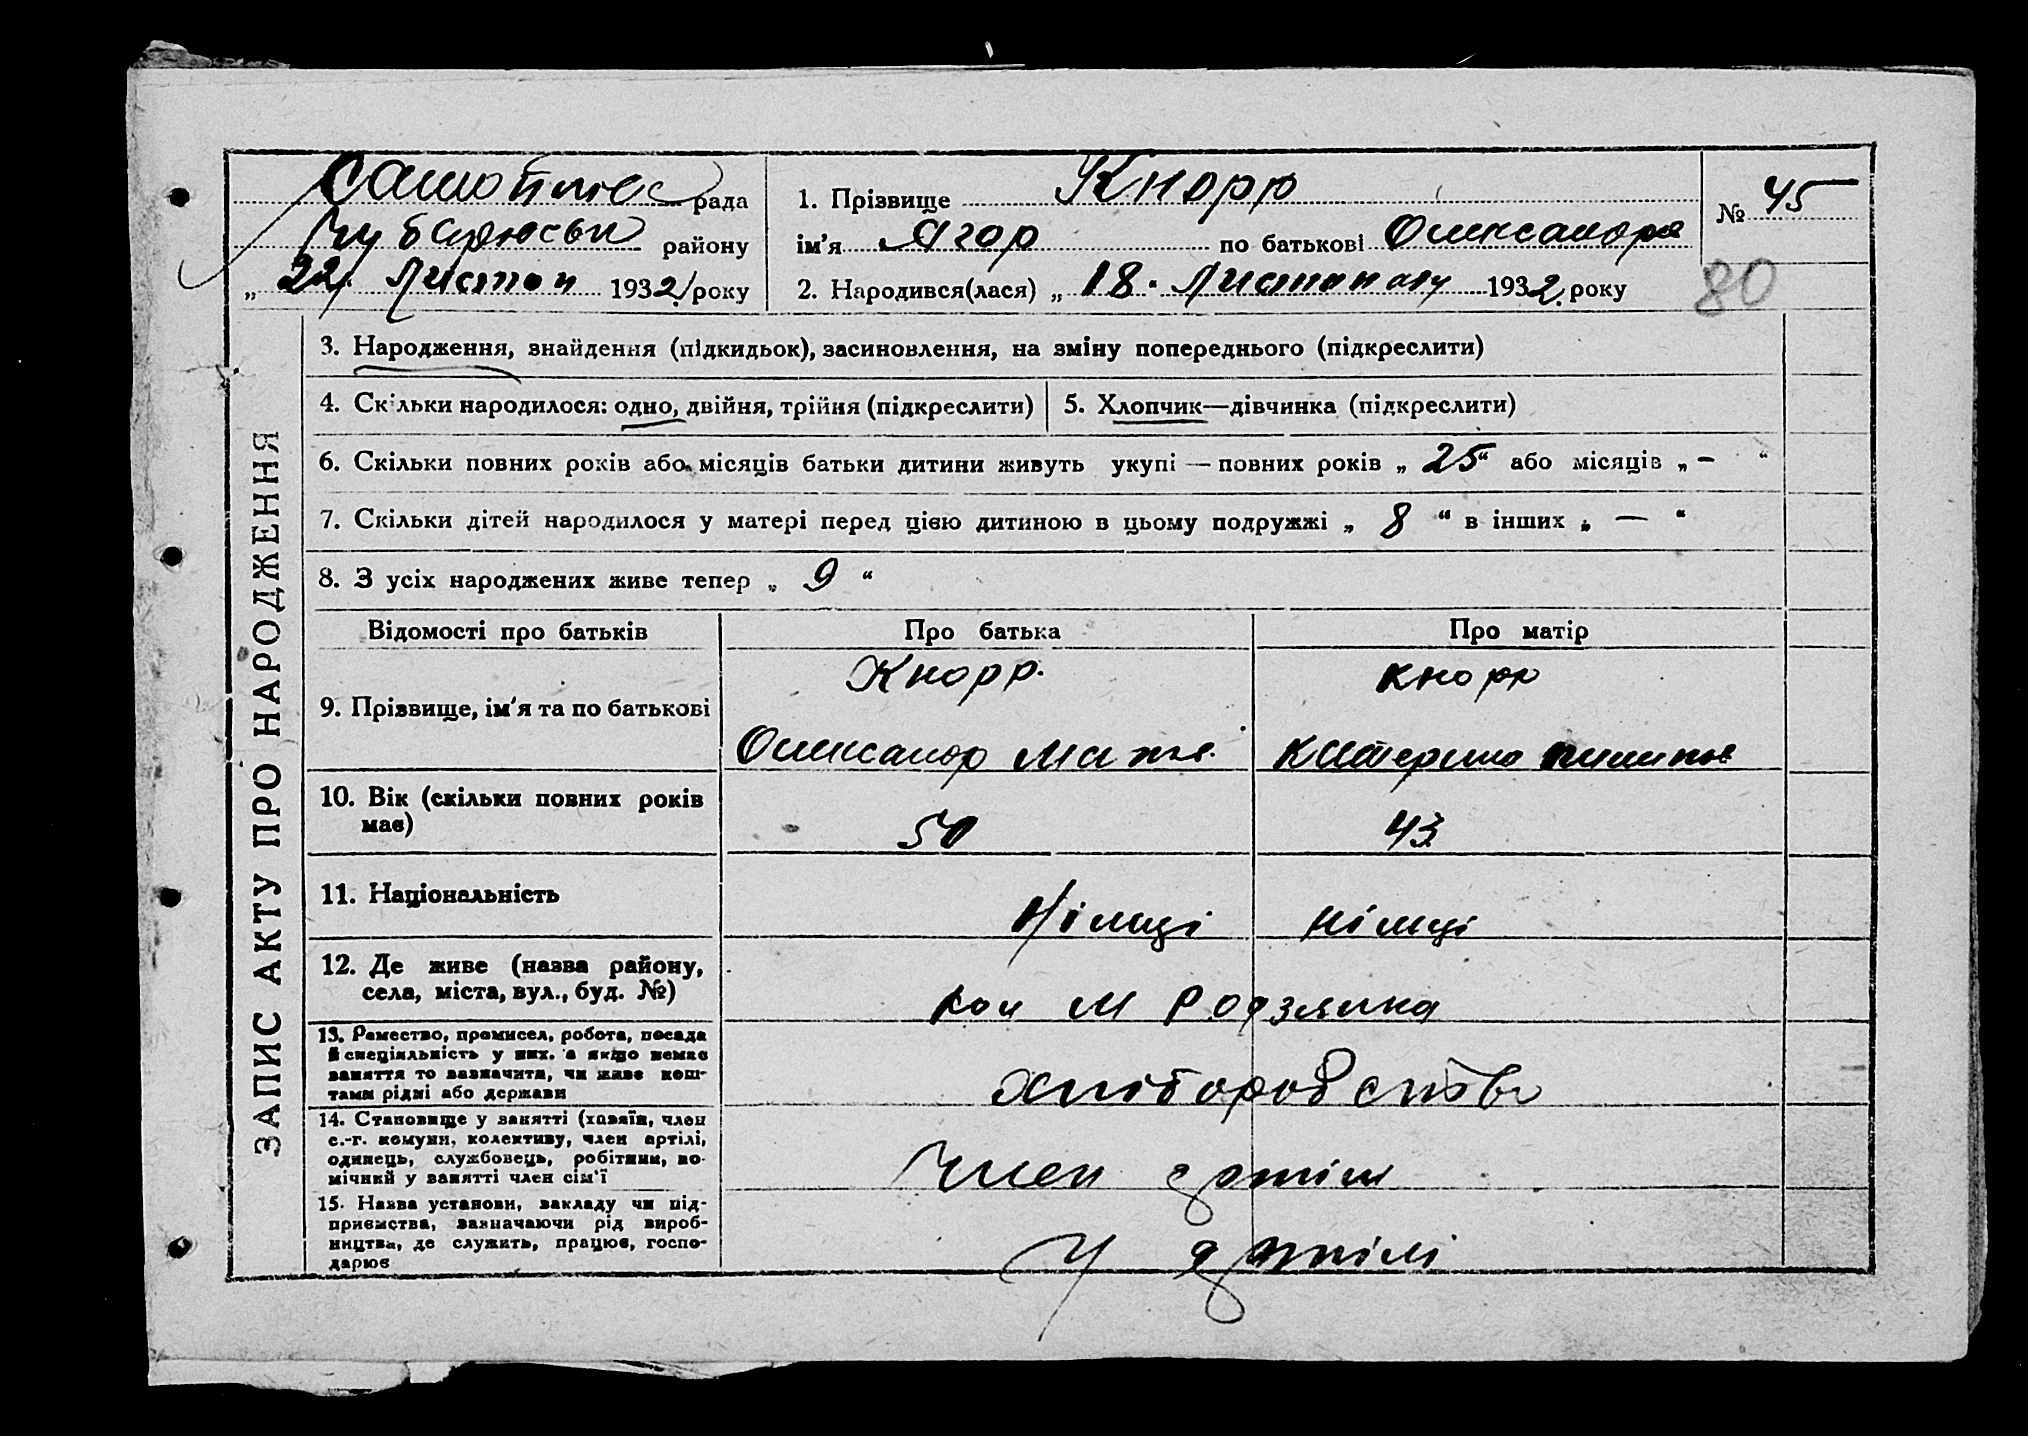 рада
району
„ 22 " Листоп 1932 року
1. Прізвище Кнорр
ім'я Ягор по батькові Олександров
2. Народився(лася) „ 18 . Листопаду 1932 року
№ 45
80
ЗАПИС АКТУ ПРО НАРОДЖЕННЯ
3. Народження, знайдення (підкидьок), засиновлення, на зміну попереднього (підкреслити)
4. Скільки народилося: одно, двійня, трійня (підкреслити)
5. Хлопчик—дівчинка (підкреслити)
6. Скільки повних років або місяців батьки дитини живуть укупі — повних років „ 25 “ або місяців „ – “
7. Скільки дітей народилося у матері перед цією дитиною в цьому подружжі „ 8 “ в інших „ — “
8. З усіх народжених живе тепер „ 9 “
Відомості про батьків
Про батька
Про матір
9. Прізвище, ім'я та по батькові
Кнорр.
Олександр
кнорр
Катерина
10. Вік (скільки повних років
має)
50
43
11. Національність
Німці
німці
12. Де живе (назва району,
села, міста, вул., буд. №)
кол М Родзянка
13. Ремество, промисел, робота, посада
й спеціяльність у них, а якщо немає
заняття то зазначити, чи живе кош-
тами рідні або держави
хліборобство
14. Становище у занятті (хазяїн, член
с.-г. комуни, колективу, член артілі,
одинець, службовець, робітник, по-
мічний у занятті член сім'ї
Член артіли
15. Назва установи, закладу чи під-
приємства, зазначаючи рід вироб-
ництва, де служить, працює, госпо-
дарює
У артілі